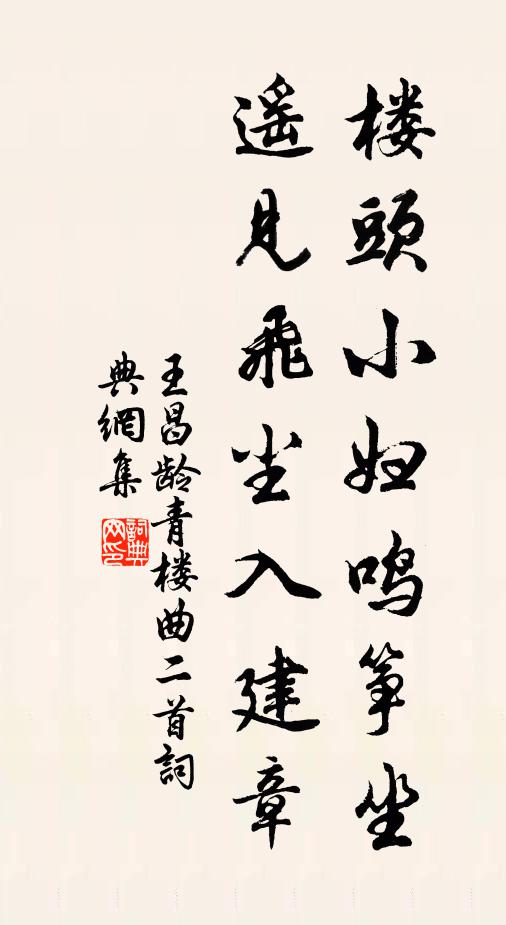 楼頭小妇鸣筝坐
遥见飛尘入建章
王昌龄青楼曲二首詞
典網集
詞典网印